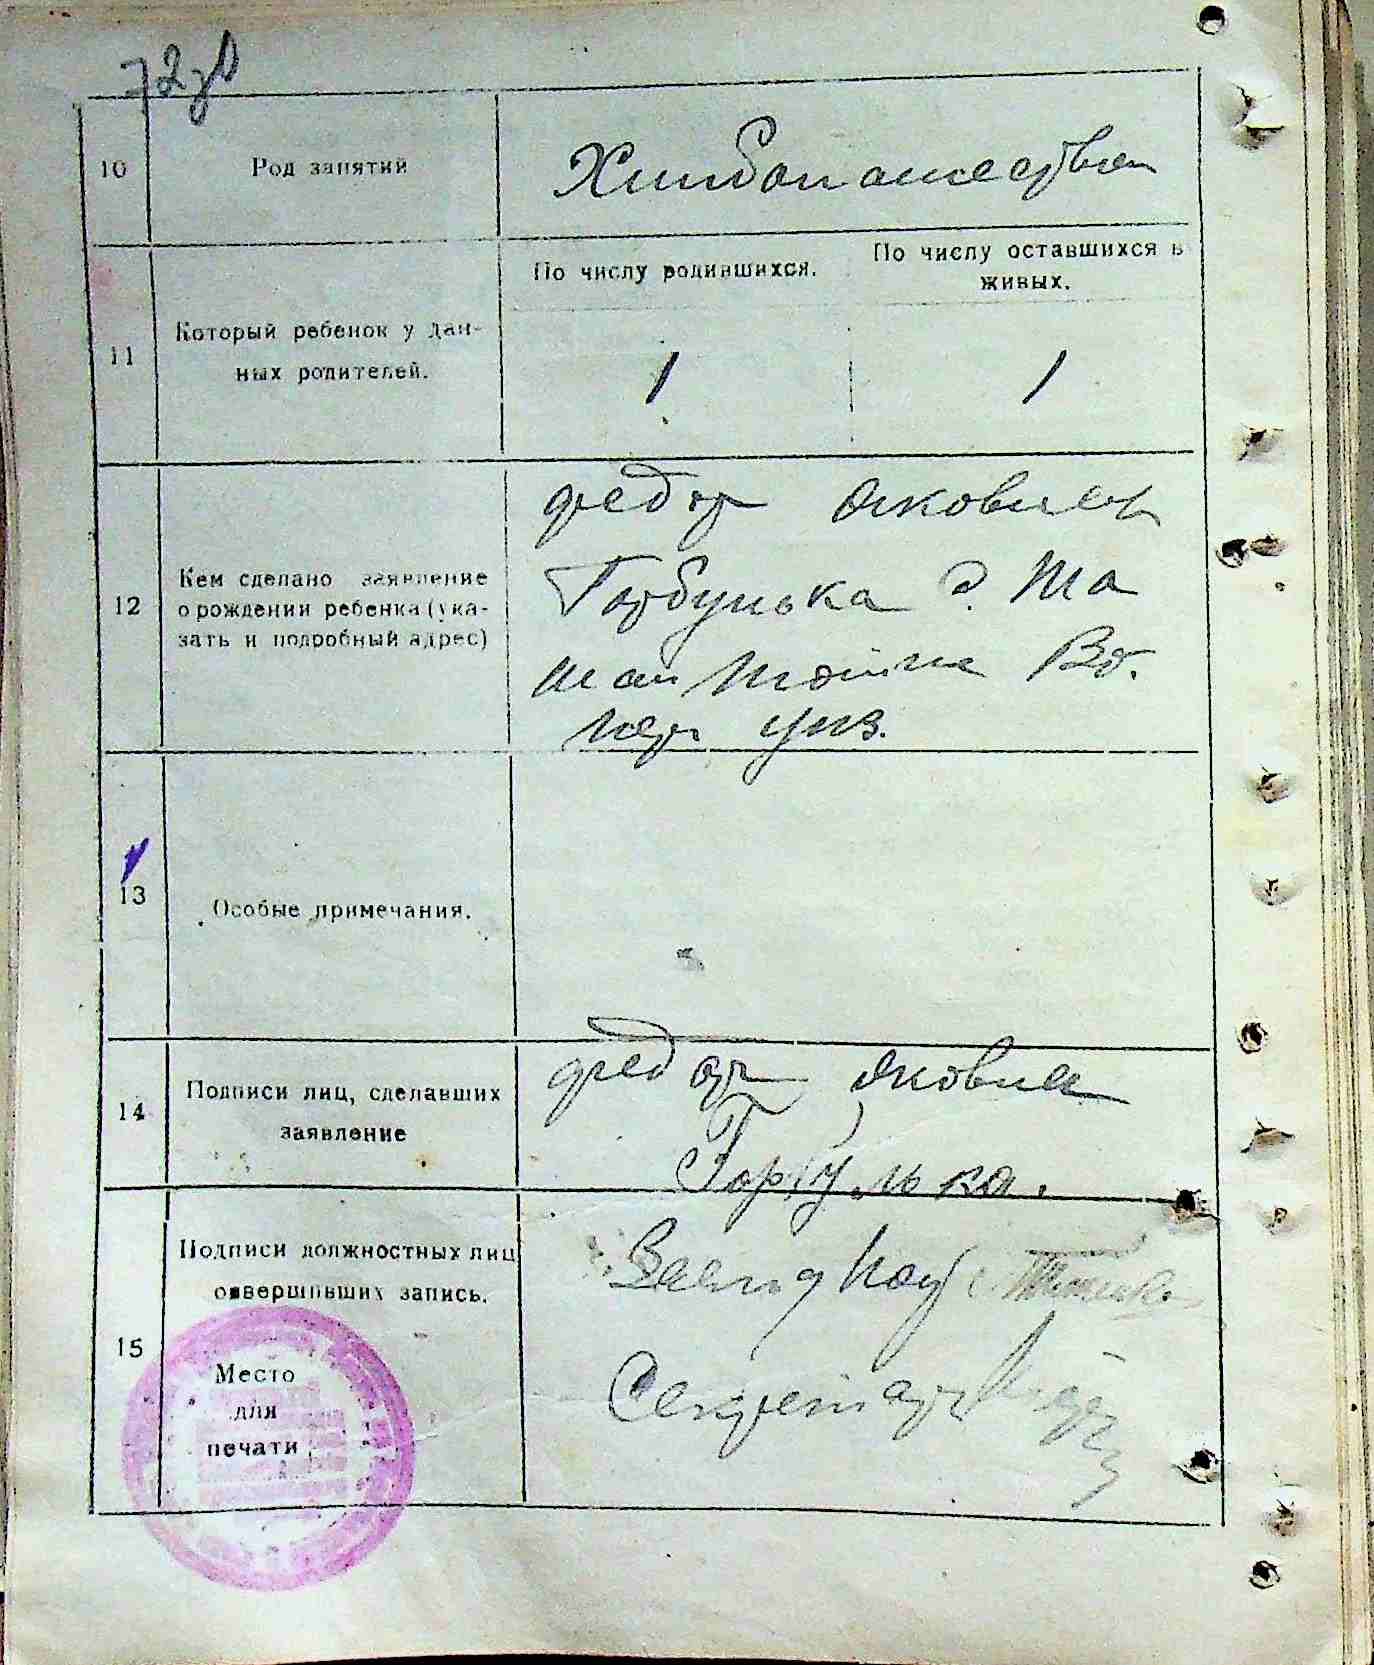 72об
10
Род занятий
Хлибопашество
11
Который ребенок у дан-
ных родителей.
По числу родившихся.
По числу оставшихся в
живых.
1
1
12
Кем сделано заявление
о рождении ребенка (ука-
зать и подробный адрес)
Федор Яковлев
Горбулька
13
Особые примечания.
14
Подписи лиц, сделавших
заявление
Федор Яковлев
Горбулька.
15
Подписи должностных лиц
совершивших запись.
Место
для
печати
Секретарь